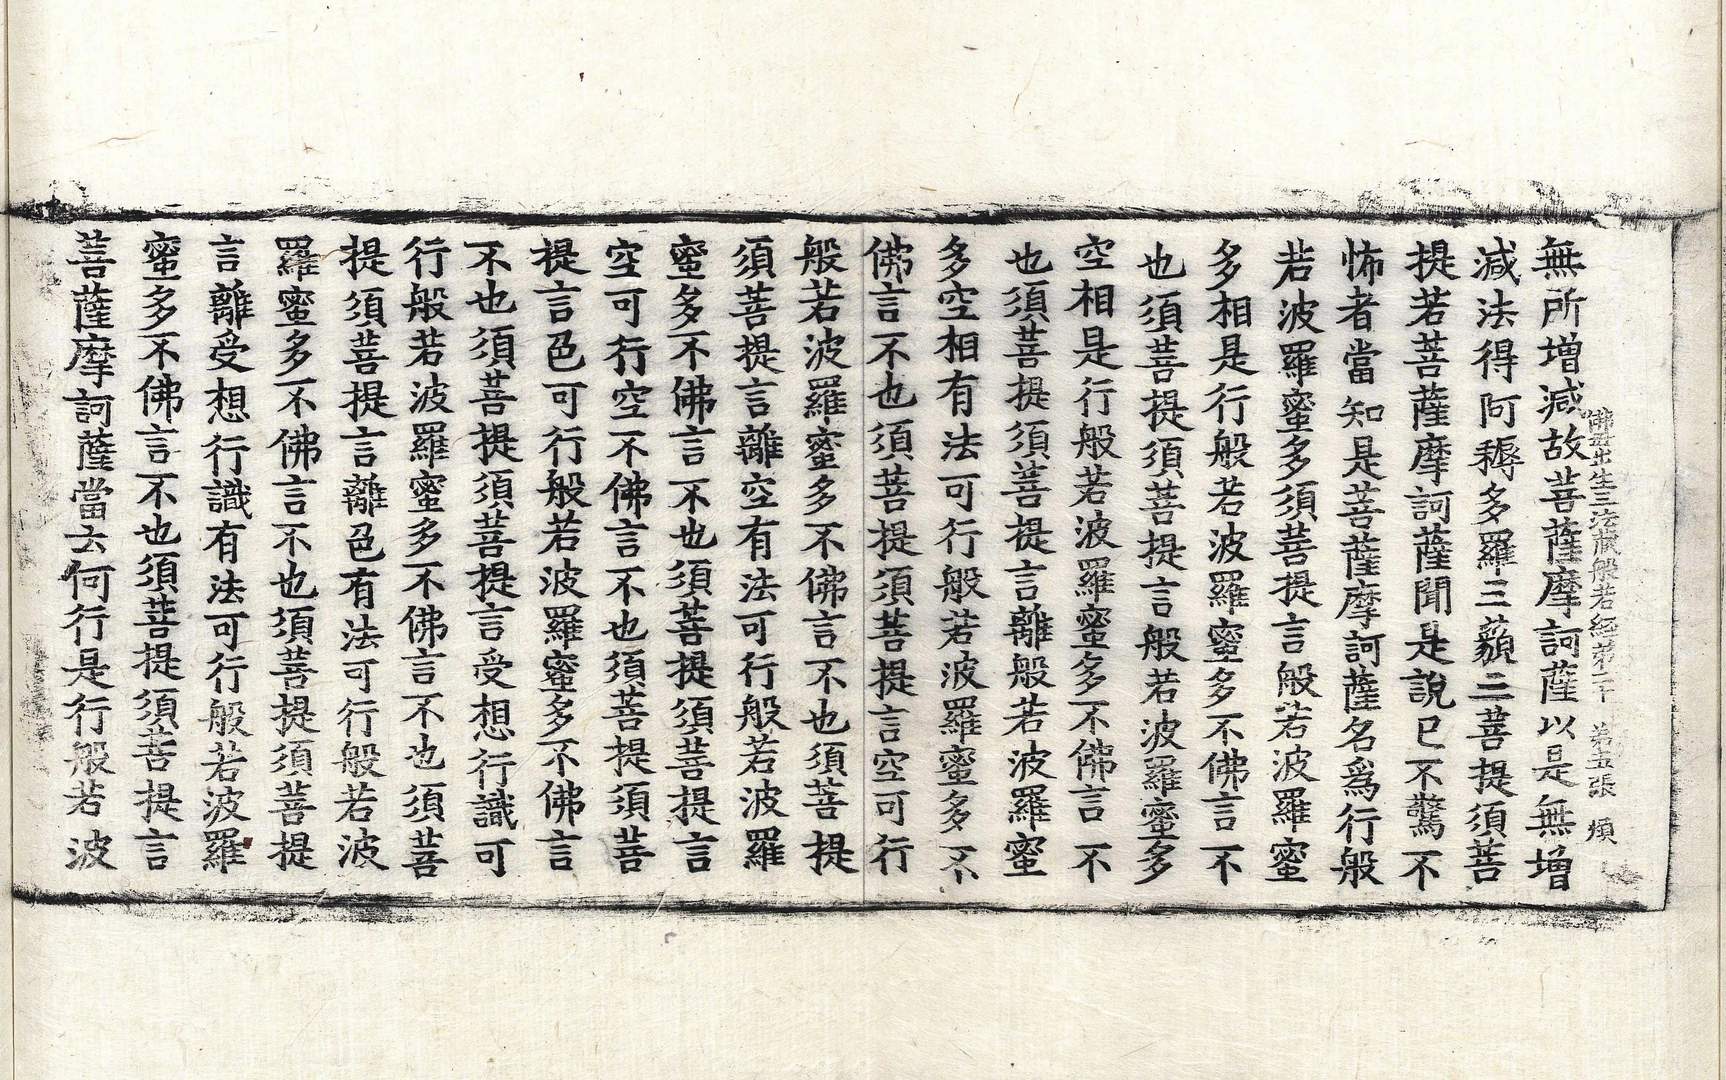 佛母出生三法藏般若經第二十 第五張 煩
無所增減故菩薩摩訶薩以是無增
減法得阿耨多羅三藐三菩提須菩
提若菩薩摩訶薩聞是說已不驚不
怖者當知是菩薩摩訶薩名爲行般
若波羅蜜多須菩提言般若波羅蜜
多相是行般若波羅蜜多不佛言不
也須菩提須菩提言般若波羅蜜多
空相是行般若波羅蜜多不佛言不
也須菩提須菩提言離般若波羅蜜
多空相有法可行般若波羅蜜多不
佛言不也須菩提須菩提言空可行
般若波羅蜜多不佛言不也須菩提
須菩提言離空有法可行般若波羅
蜜多不佛言不也須菩提須菩提言
空可行空不佛言不也須菩提須菩
提言色可行般若波羅蜜多不佛言
不也須菩提須菩提言受想行識可
行般若波羅蜜多不佛言不也須菩
提須菩提言離色有法可行般若波
羅蜜多不佛言不也須菩提須菩提
言離受想行識有法可行般若波羅
蜜多不佛言不也須菩提須菩提言
菩薩摩訶薩當云何行是行般若波